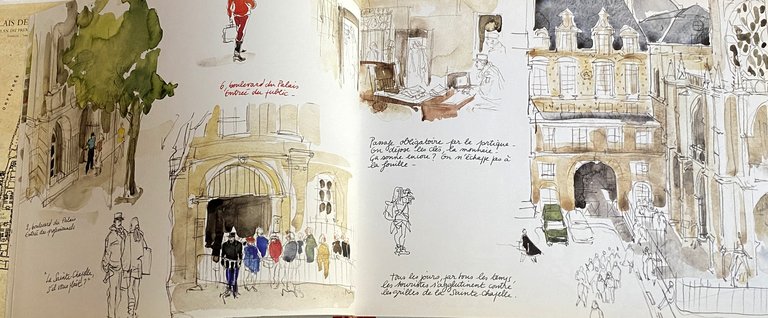 AIS DE
6, boulevard du Palais
Entrée du public
2 boulevard du Palais
Entrée des professionnels
"La Sainte Chapelle,
s'il vous plaît ?"
Passage obligatoire par le portique.
On dépose les clés, la monnaie.
Ça sonne encore ? On n'échappe pas à
la fouille.
Tous les jours, par tous les temps
les touristes s'agglutinent contre
les grilles de la Sainte Chapelle.